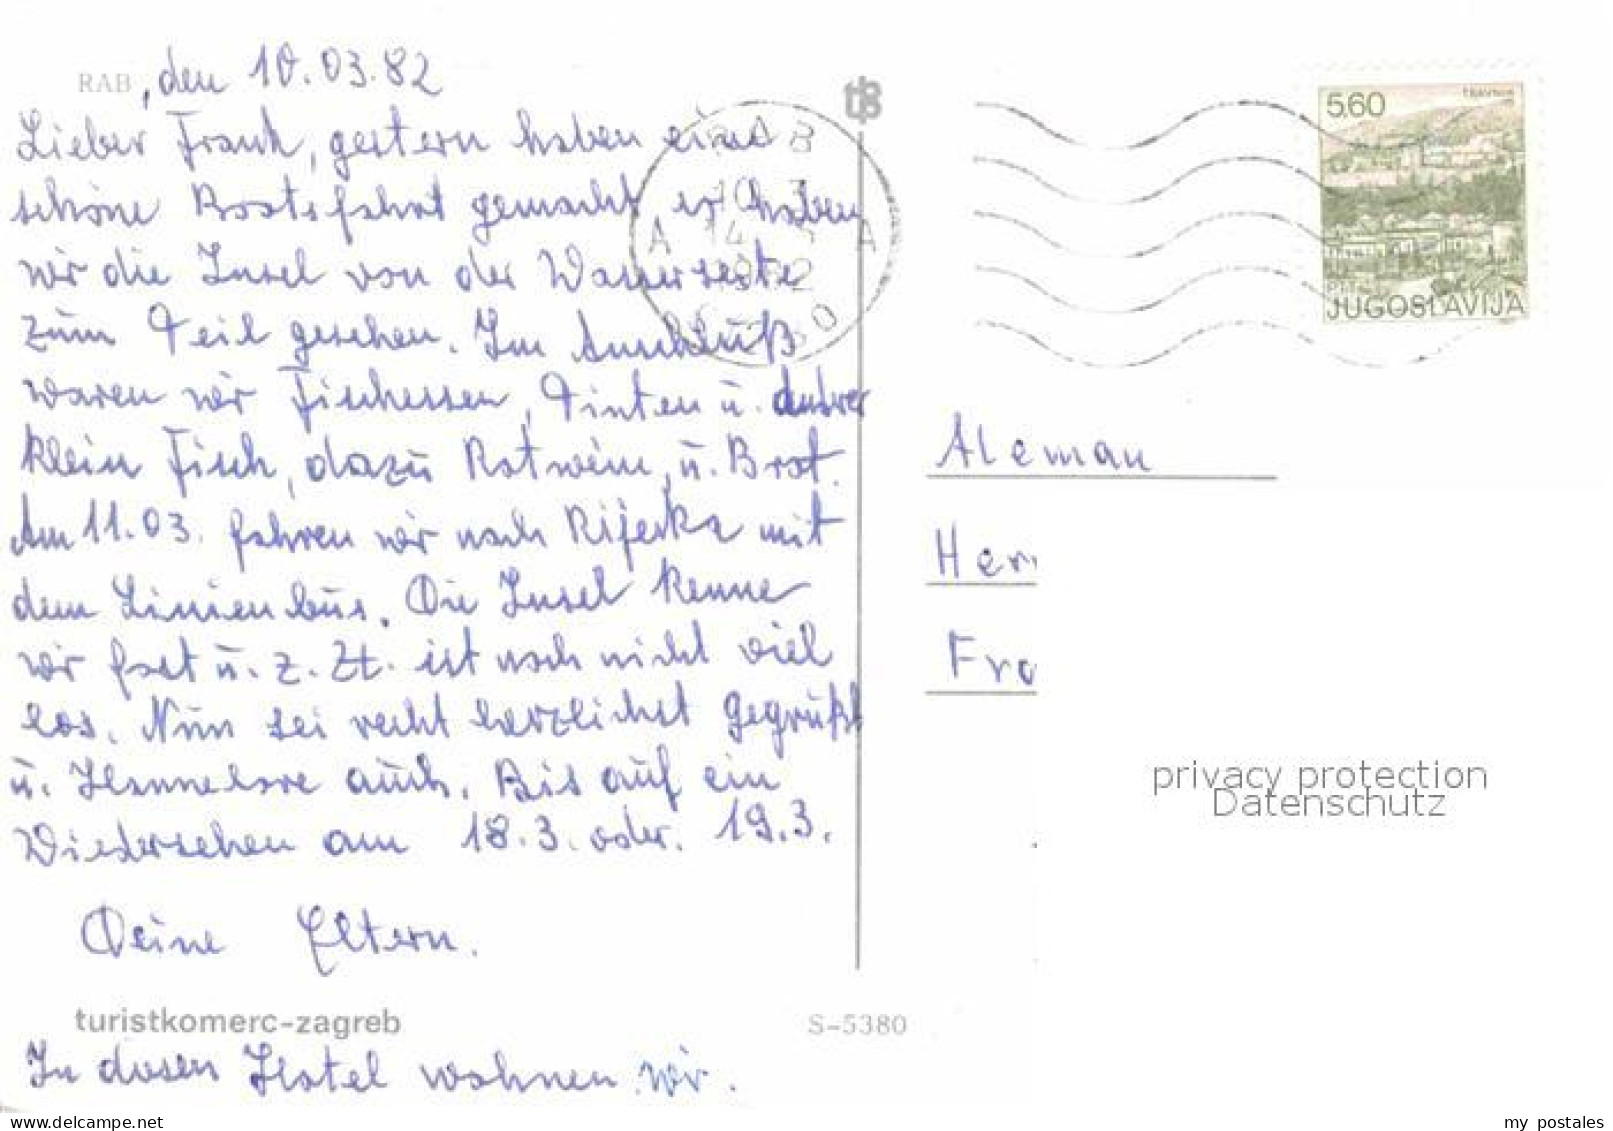 RAB, den 10.03.82
Lieber Frank, gestern haben eine
schöne Bootsfahrt gemacht, es haben
wir die Insel von der Wasserseite
zum Teil gesehen. Im Anschluß
waren wir Fischessen, Tinten u. andrer
klein Fisch, dazu Rotwein, u. Brot.
Am 11.03. fahren wir nach Rijecka mit
dem Linienbus. Die Insel kenne
wir fast u. z. Zt. ist noch nicht viel
los. Nun sei recht herzlichst gegrüßt
u. Hannelore auch. Bis auf ein
Wiedersehen am 18.3. oder. 19.3.
Deine Eltern.
turistkomerc-zagreb
S-5380
In diesen Hotel wohnen wir.
tb
RAB
10 3
A 14 A
5.60
TRAVNIK
PTT
JUGOSLAVIJA
Aleman
Her
Fra
privacy protection
Datenschutz
www.delcampe.net
my postales